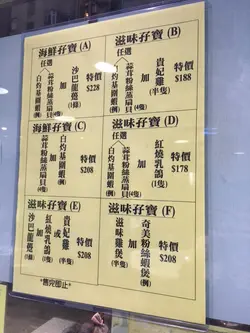 海鮮孖寶 (A)
任選
白灼基圍蝦(例)
蒜茸粉絲蒸扇貝(4隻)
加
沙巴龍躉(1條)
特價
$228
滋味孖寶 (B)
任選
白灼基圍蝦(例)
蒜茸粉絲蒸扇貝(4隻)
加
貴妃雞(半隻)
特價
$188
海鮮孖寶 (C)
白灼基圍蝦(例)
加
蒜茸粉絲蒸扇貝(4隻)
特價
$208
滋味孖寶 (D)
任選
白灼基圍蝦(例)
蒜茸粉絲蒸扇貝(4隻)
加
紅燒乳鴿(1隻)
特價
$178
滋味孖寶 (E)
沙巴龍躉(1條)
加
紅燒乳鴿(1隻)
或
貴妃雞(半隻)
特價
$208
滋味孖寶 (F)
滋味雞煲(半隻)
加
奇美粉絲蝦煲(例)
特價
$208
*售完即止*